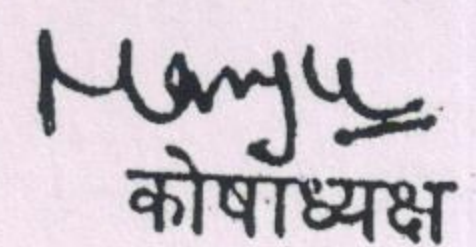 Manju
कोषाध्यक्ष